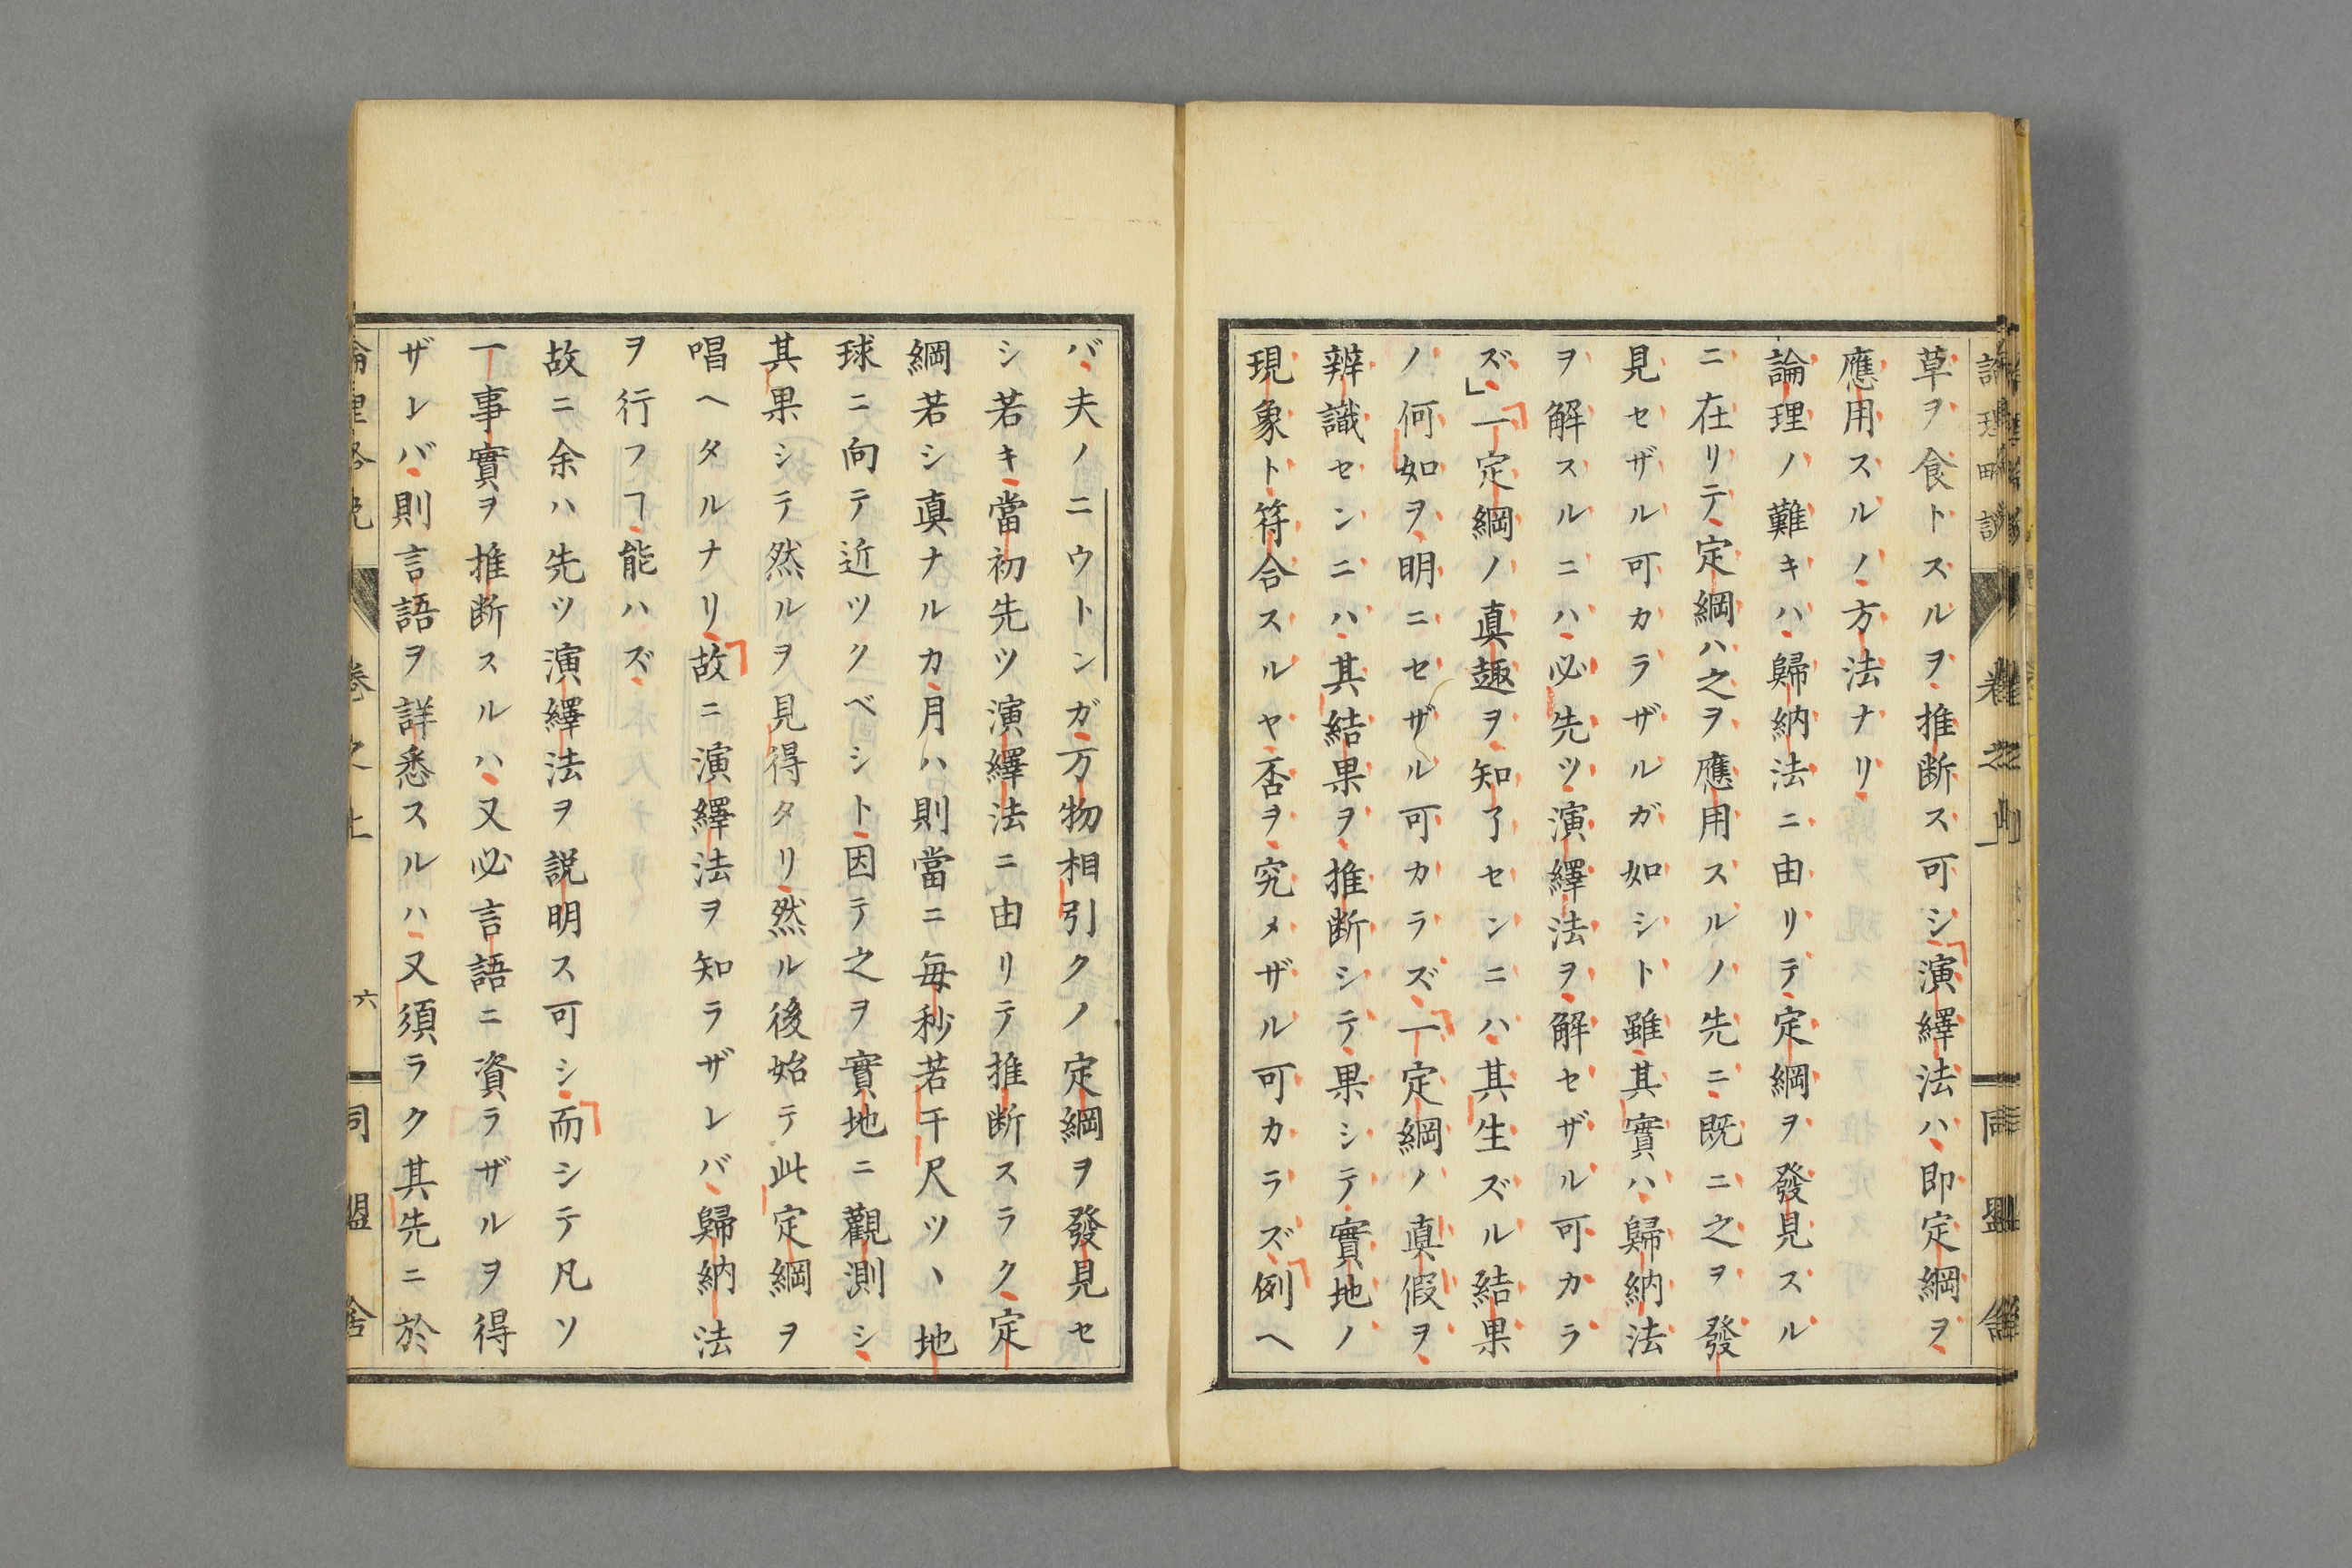 草ヲ食トスルヲ推断ス可シ演繹法ハ即定綱ヲ
應用スルノ方法ナリ
論理ノ難キハ歸納法ニ由リテ定綱ヲ發見スル
ニ在リテ定綱ハ之ヲ應用スルノ先ニ既ニ之ヲ發
見セザル可カラザルガ如シト雖其實ハ歸納法
ヲ解スルニハ必先ツ演繹法ヲ解セザル可カラ
ズ」一定綱ノ真趣ヲ知了センニハ其生ズル結果
ノ何如ヲ明ニセザル可カラズ一定綱ノ真假ヲ
辨識センニハ其結果ヲ推断シテ果シテ實地ノ
現象ト符合スルヤ否ヲ究メザル可カラズ例ヘ
バ夫ノニウトンガ万物相引クノ定綱ヲ發見セ
シ若キ當初先ツ演繹法ニ由リテ推断スラク定
綱若シ真ナルカ月ハ則當ニ毎秒若干尺ツヽ地
球ニ向テ近ツクベシト因テ之ヲ實地ニ觀測シ
其果シテ然ルヲ見得タリ然ル後始テ此定綱ヲ
唱ヘタルナリ故ニ演繹法ヲ知ラザレバ歸納法
ヲ行フヿ能ハズ
故ニ余ハ先ツ演繹法ヲ説明ス可シ而シテ凡ソ
一事實ヲ推断スルハ又必言語ニ資ラザルヲ得
ザレバ則言語ヲ詳悉スルハ又須ラク其先ニ於
卷之上
六
同盟舍